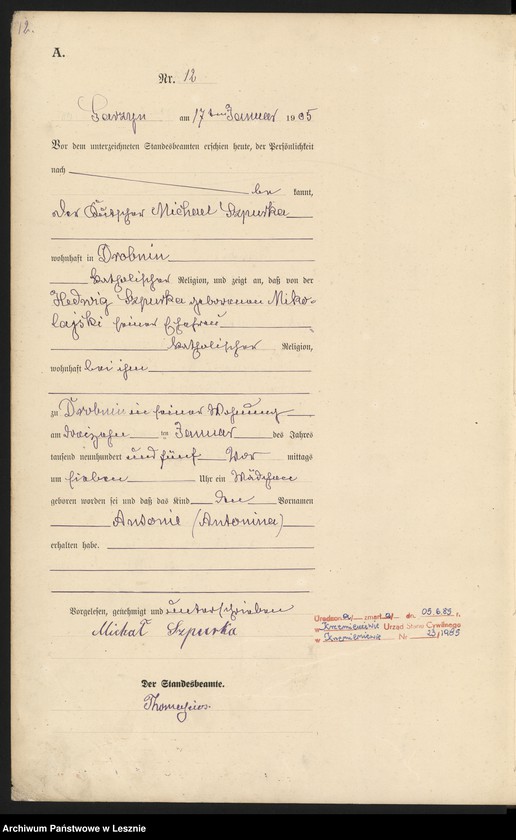 12.
A.
Nr. 12
Garzyn am 17ten Januar 1905
Vor dem unterzeichneten Standesbeamten erschien heute, der Persönlichkeit
nach be kannt,
der Kutscher Michael Szpurka
wohnhaft in Drobnin
katholischer Religion, und zeigt an, daß von der
Hedwig Szpurka geborenen Miko-
lajski seiner Ehefrau
katholischer Religion,
wohnhaft bei ihm
zu Drobnin in seiner Wohnung
am dreizehn ten Januar des Jahres
tausend neunhundert und fünf Vor mittags
um sieben Uhr ein Mädchen
geboren worden sei und daß das Kind den Vornamen
Antonie (Antonina)
erhalten habe.
Vorgelesen, genehmigt und unterschrieben
Michał Szpurka
Urodzon a zmarł a dn. 09.6.85 r.
w Krzemieniewie Urząd Stanu Cywilnego
w Krzemieniewie Nr 23/1985
Der Standesbeamte.
Archiwum Państwowe w Lesznie